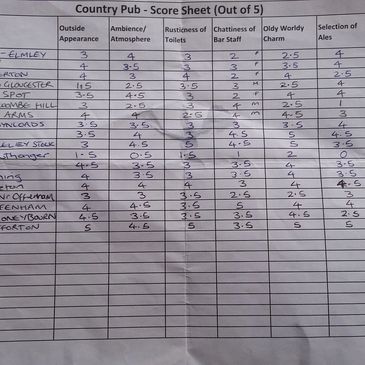 Country Pub - Score Sheet (Out of 5)
Outside Appearance Ambience/ Atmosphere Rusticness of Toilets Chattiness of Bar Staff Oldy Worldy Charm Selection of Ales
-ELMLEY 3 4 3 2 F 2.5 4
4 3.5 3 3 F 3.5 4
ERTON 4 3 4 2 F 4 2.5
GLOUCESTER 1.5 2.5 3.5 3 M 3 3
SPOT 3.5 4.5 3 2 F 4 4
COMBE HILL 3 2.5 3 4 M 2.5 1
ARMS 4 4 2.5 4 M 4.5 3
3.5 3.5 3 3 3.5 4
3.5 4 3 4.5 5 4.5
3 4.5 5 4.5 5 3.5
1.5 0.5 1.5 2 0
4.5 3.5 3 3.5 4 3.5
4 3.5 3 3.5 4 3.5
4 4 4 3 4 4.5
Offenham 3 3 3.5 2.5 2.5 3
FENHAM 4 4.5 3.5 5 4 4
HONEYBOURN 4.5 3.5 3.5 3.5 4.5 2.5
FFORTON 5 4.5 3.5 5 5 5